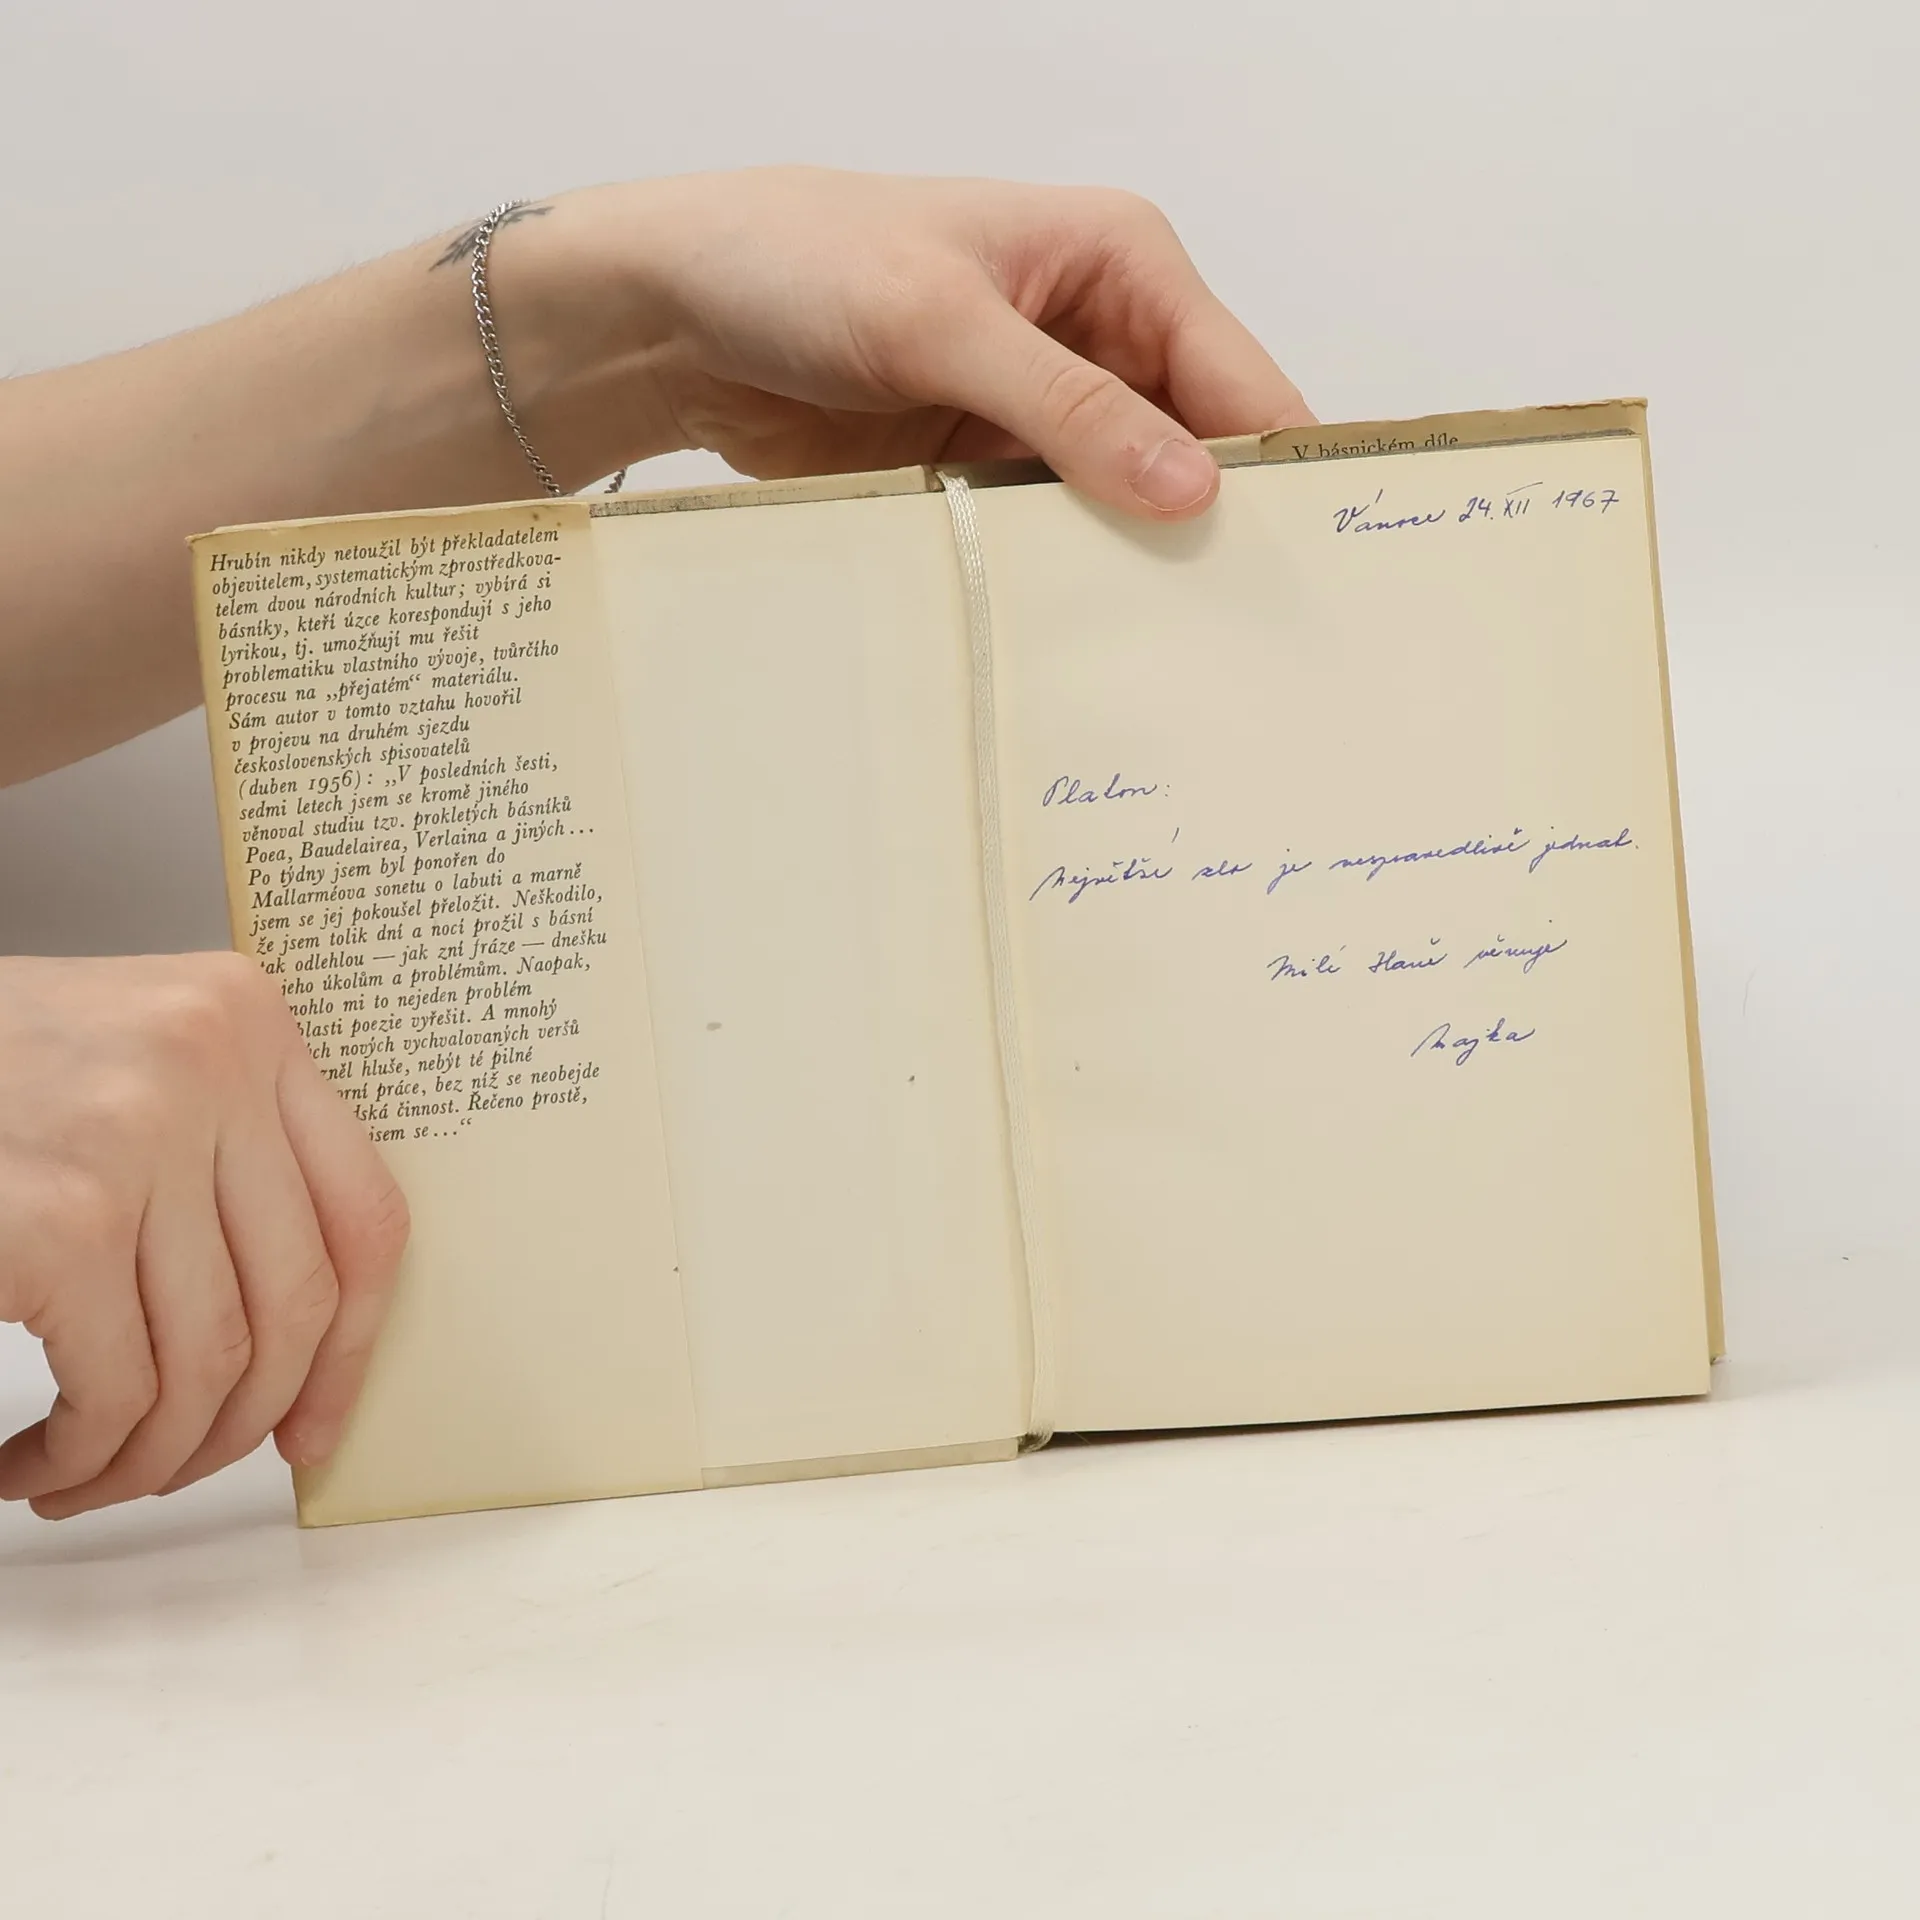 Hrubín nikdy netoužil být překladatelem
objevitelem, systematickým zprostředkova-
telem dvou národních kultur; vybírá si
básníky, kteří úzce korespondují s jeho
lyrikou, tj. umožňují mu řešit
problematiku vlastního vývoje, tvůrčího
procesu na „přejatém“ materiálu.
Sám autor v tomto vztahu hovořil
v projevu na druhém sjezdu
československých spisovatelů
(duben 1956): „V posledních šesti,
sedmi letech jsem se kromě jiného
věnoval studiu tzv. prokletých básníků
Poea, Baudelairea, Verlaina a jiných...
Po týdny jsem byl ponořen do
Mallarméova sonetu o labuti a marně
jsem se jej pokoušel přeložit. Neškodilo,
že jsem tolik dní a nocí prožil s básní
tak odlehlou — jak zní fráze — dnešku
jeho úkolům a problémům. Naopak,
mohlo mi to nejeden problém
blasti poezie vyřešit. A mnohý
ch nových vychvalovaných veršů
zněl hluše, nebýt té pilné
orní práce, bez níž se neobejde
dská činnost. Řečeno prostě,
jsem se...“
V básnickém díle
Vánoce 24. XII 1967
Platon:
Největší zlo je nespravedlivě jednat.
Milé Haně věnuje
Majka